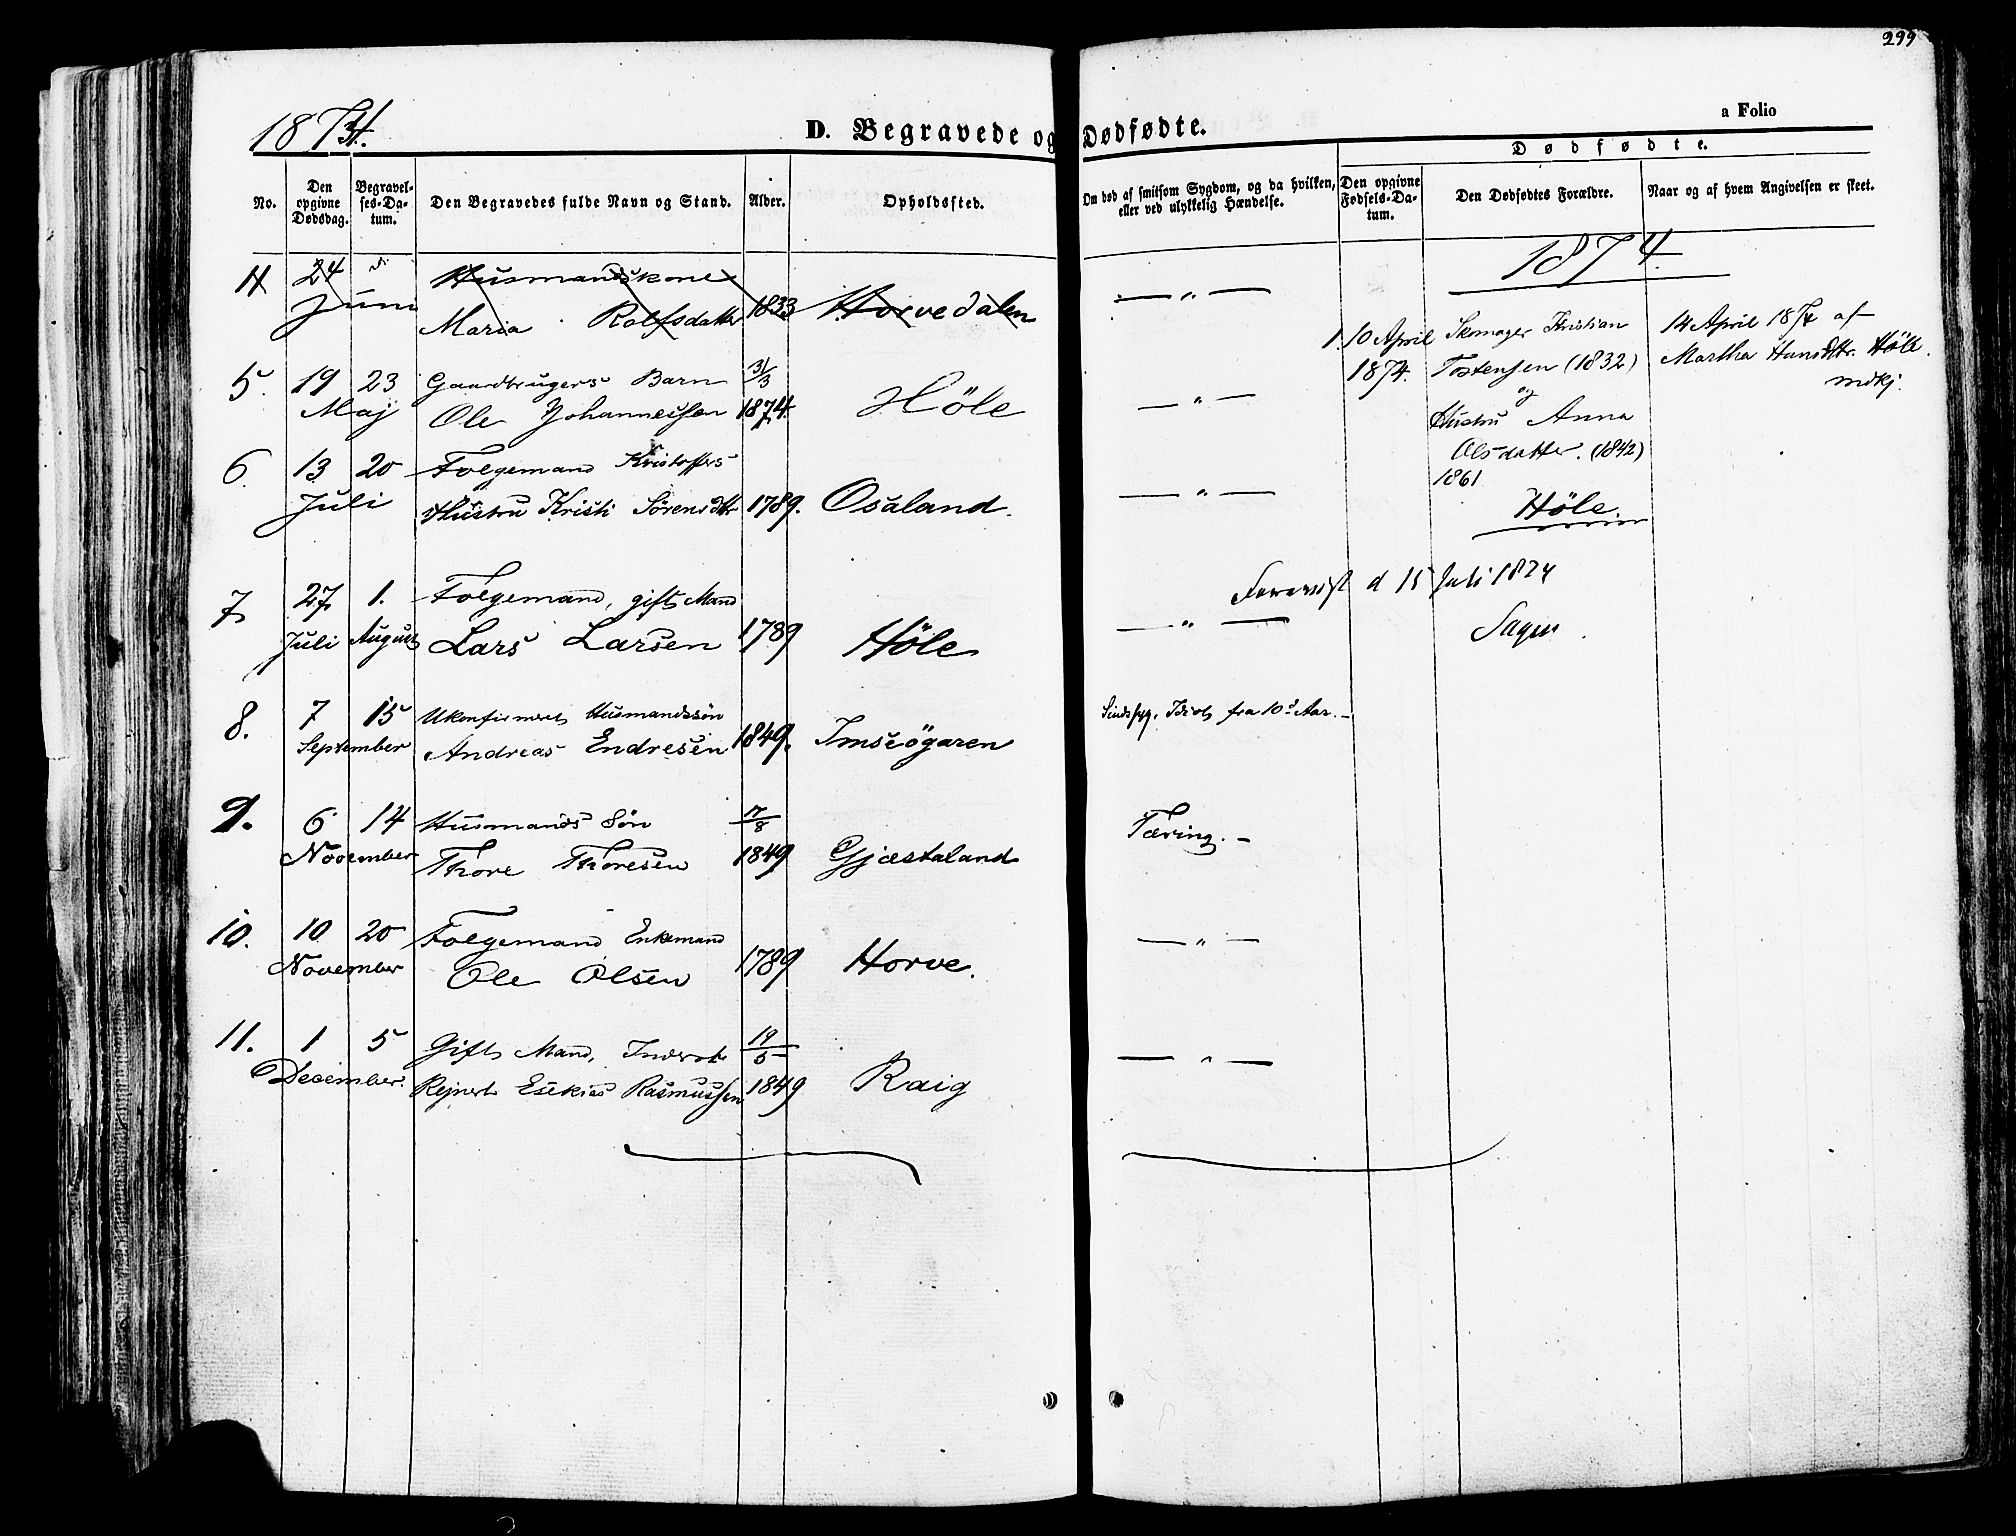 299
1874.
D. Begravede og Dødfødte.
a Folio
No.
Den opgivne Dødsdag.
Begravelses-Datum.
Den Begravedes fulde Navn og Stand.
Alder.
Opholdssted.
Om død af smitsom Sygdom, og da hvilken, eller ved ulykkelig Hændelse.
Dødfødte.
Den opgivne Fødsels-Datum.
Den Dødfødtes Forældre.
Naar og af hvem Angivelsen er skeet.
1874
4 24 Husmandskone — „ —
Juni Maria Rolfsdatter 1833 Horvedalen
1. 10 April Skomager Kristian 14 April 1874 af
1874. Tostensen (1832) Martha Hansdtr. Höle
og indkj.
Hustru Anna
Olsdatter. (1842)
1861
Höle
5. 19 23 Gaardbrugers Barn 31/3
Maj Ole Johannessen 1874. Höle — „ —
6. 13 20 Folgemand Kristoffers
Juli Hustru Kristi Sörensdtr 1789. Osaland. — „ —
d 15 Juli 1874
7 27 1. Folgemand, gift Mand
Juli August Lars Larsen 1789 Höle — „ —
8. 7 15 Ukonfirmert Husmandssön
September Andreas Endresen 1849. Imseögaren
Sindssyg. Idiot fra 10d Aar. —
9. 6 14 Husmands Sön 7/8
November Thore Thoresen 1849 Gjæstaland
Tæring. —
10. 10 20 Folgemand Enkemand
November Ole Olsen 1789 Horve. — „ —
11. 1 5 Gift Mand, Inderst 19/5
December Rejnert Esekias Rasmussen 1849 Raig — „ —